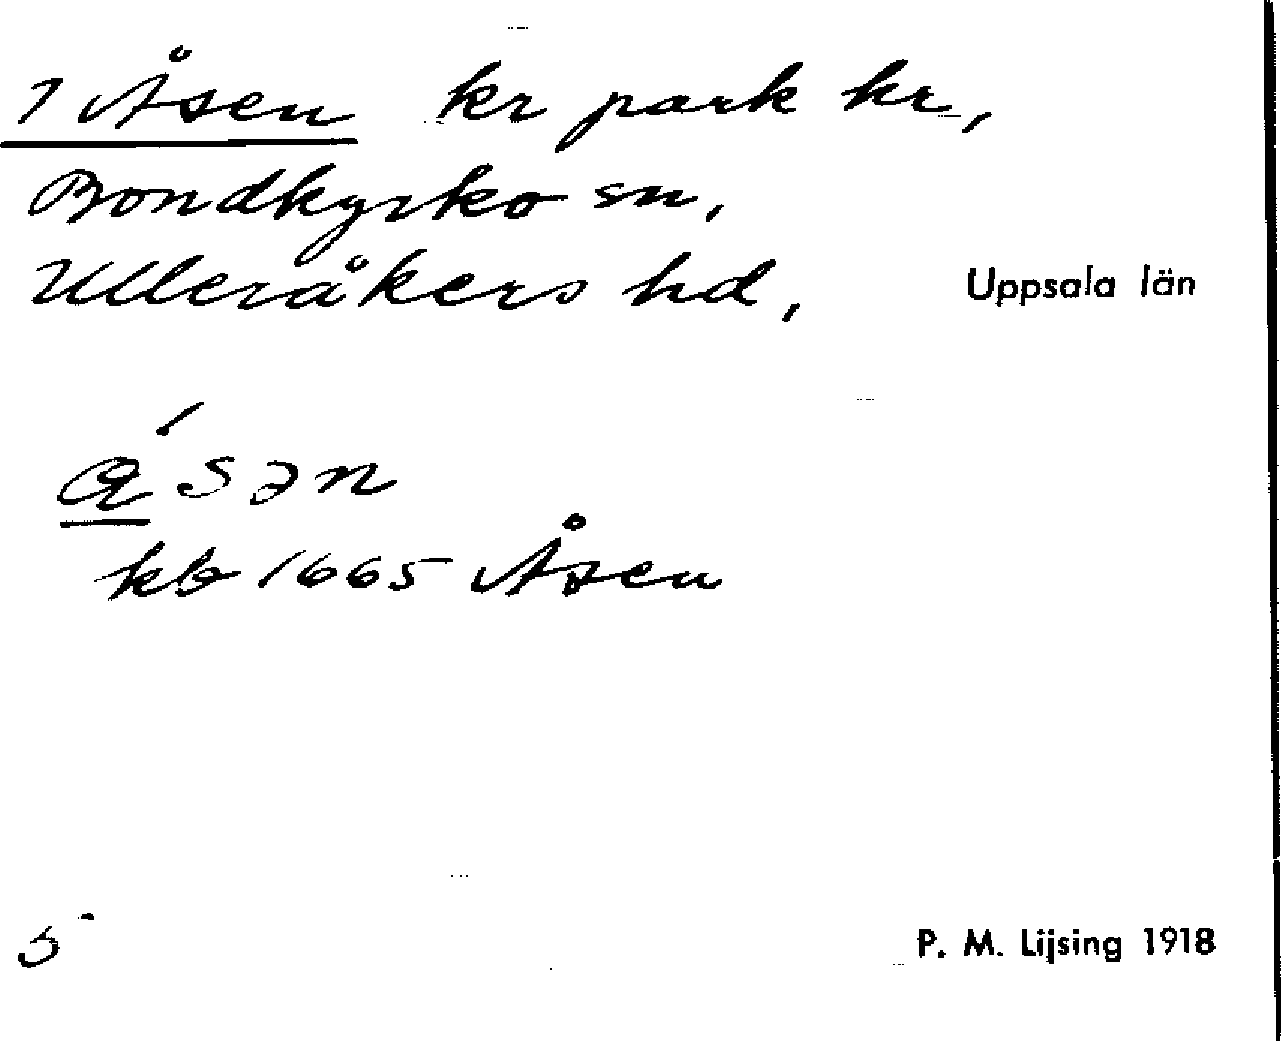 1 Åsen kr park kr,
Bondkyrko sn,
Ulleråkers hd, Uppsala län
kb 1665 Åsen
5
P. M. Lijsing 1918